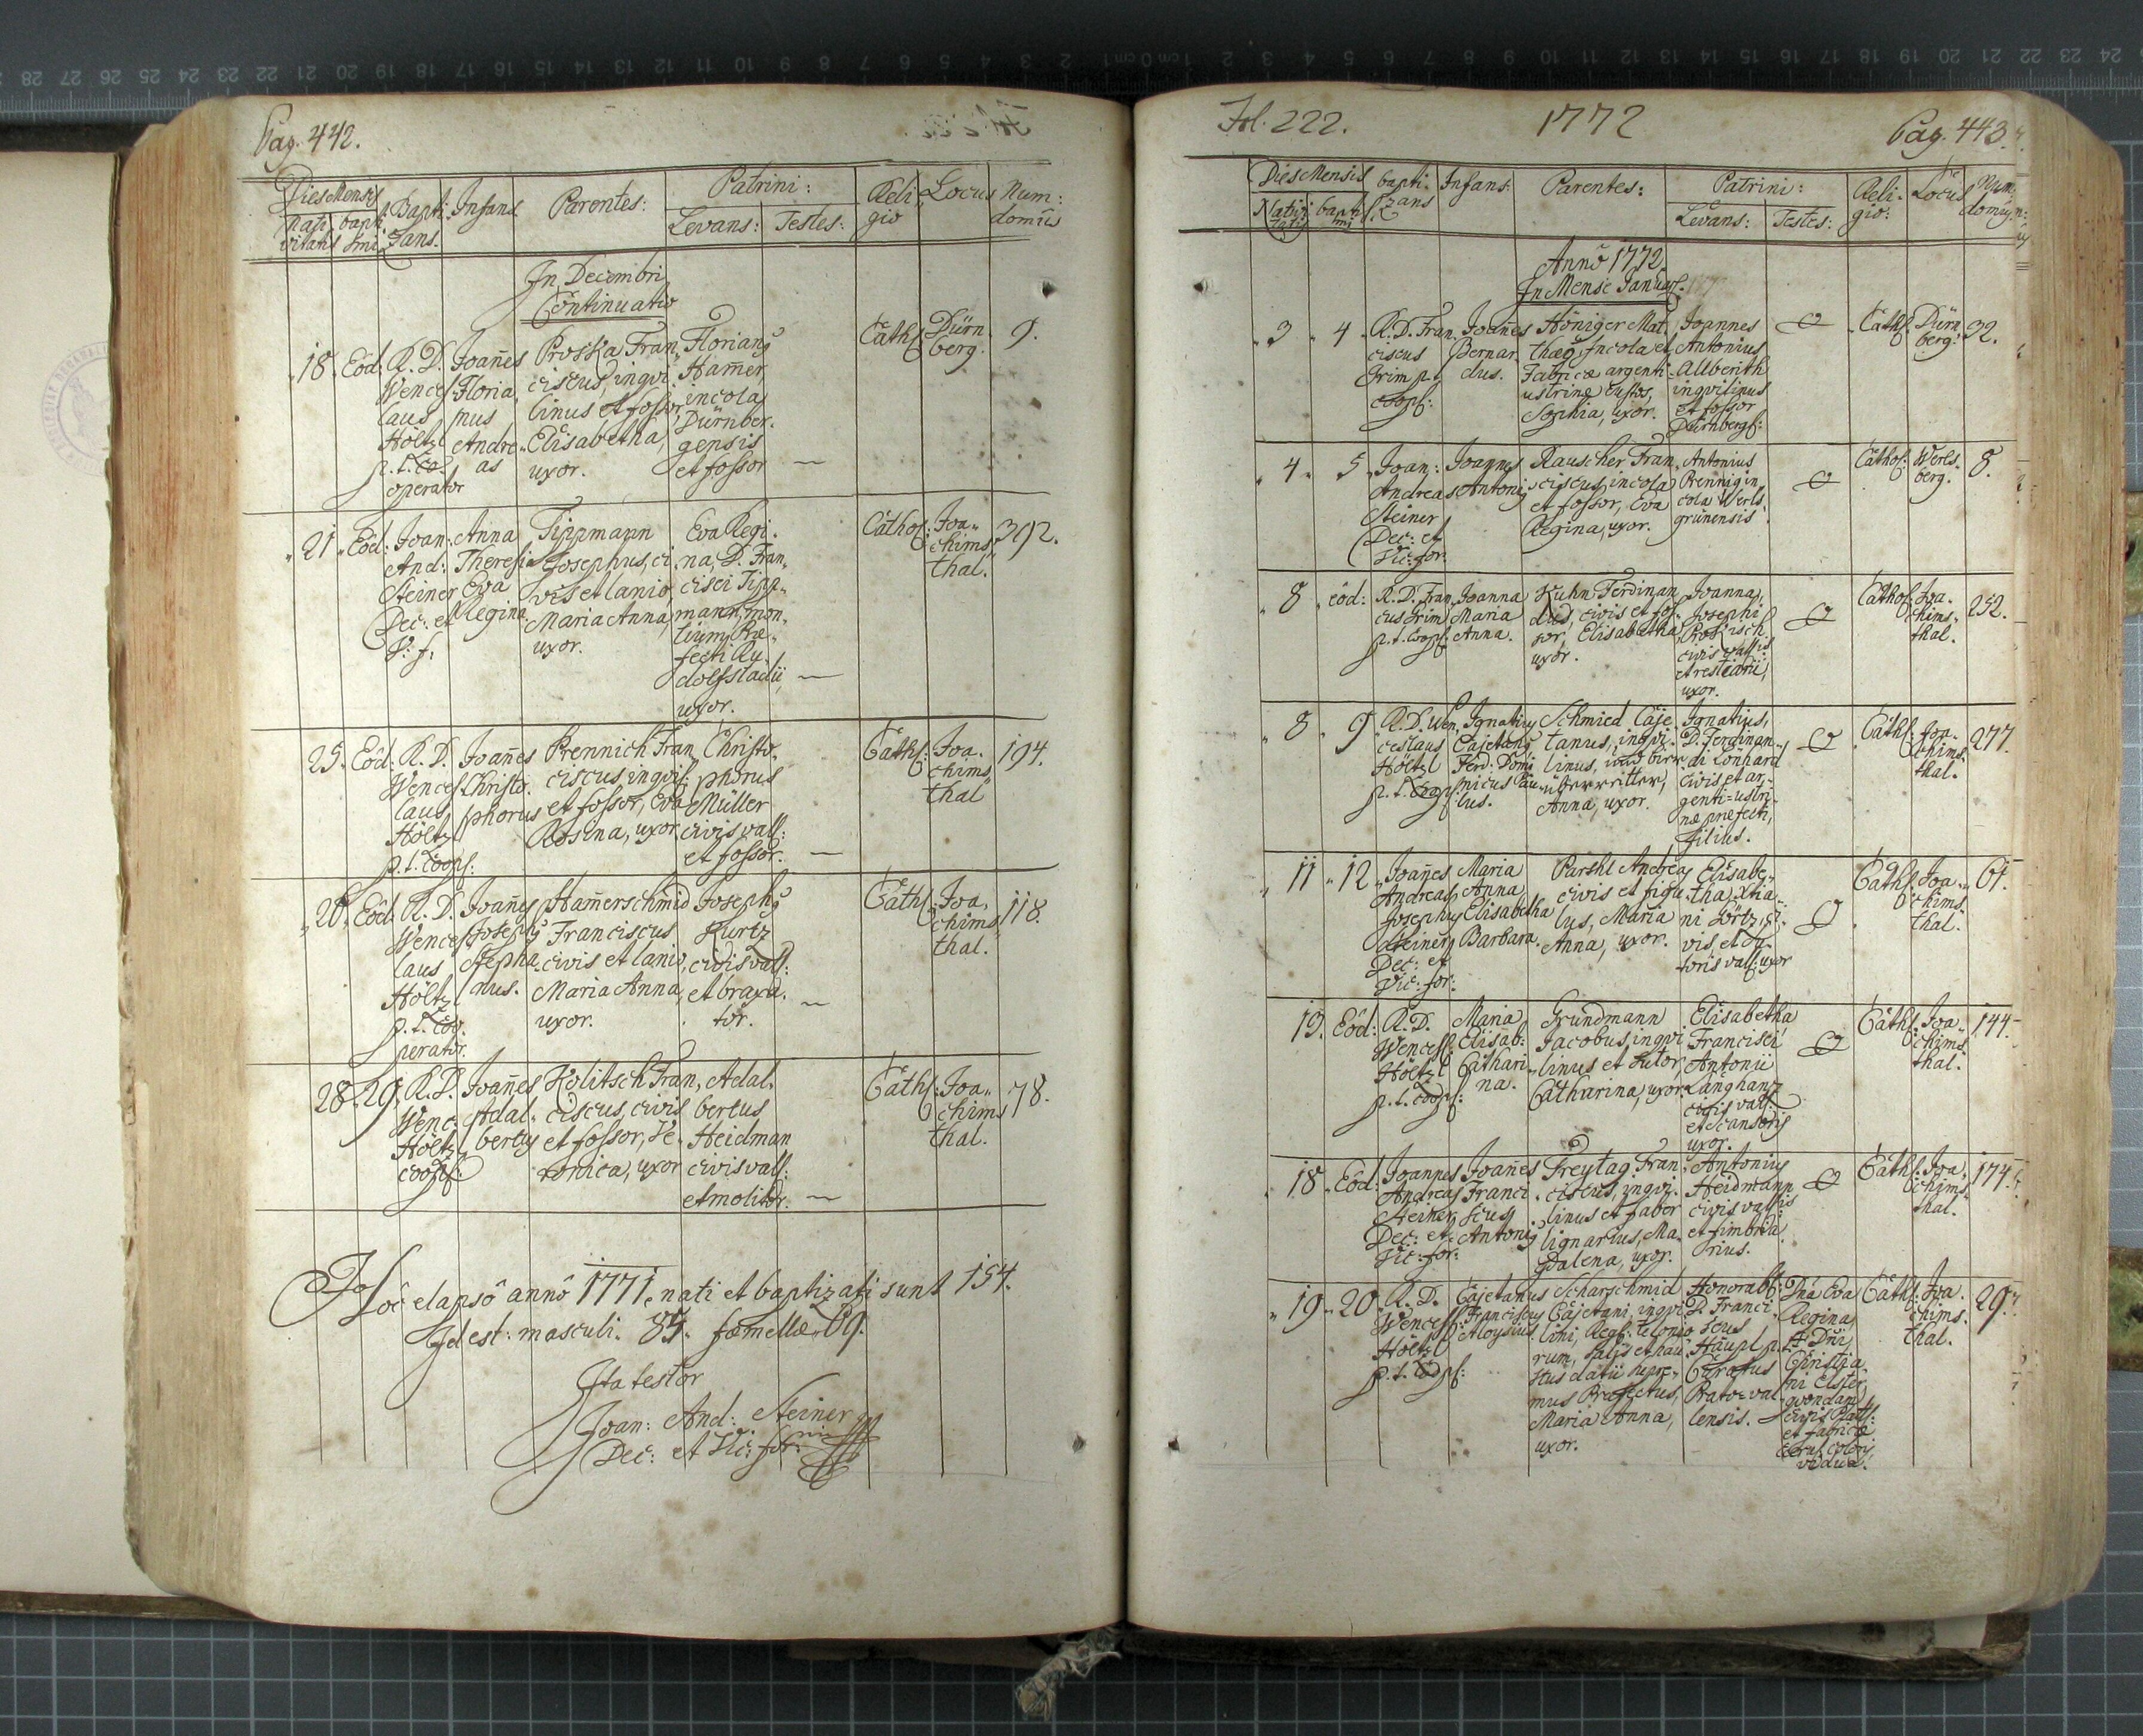 Pag. 442.
Dies Mensis
Nati-
vitatis
bapt:
smi
Bapti-
zans.
Infans.
Parentes:
Patrini:
Levans:
Testes:
Reli
gio
Locus
Num:
domûs
In Decembri
Continuatio
18. Eod:
R. D.
Wences
laus
Höltzl
p. t. Co
operator
Joañes
Floria
nus
Andre-
as
Proska Fran
ciscus, inqvi
linus et fossor
Elisabetha,
uxor.
Florianus
Ham̃er,
incola
Dürnber.
gensis
et fossor
Cathol:
Dürn
berg.
9.
21. Eod:
Joan:
And:
Steiner
Dec: et
V: f:
Anna
Theresia
Eva
Regina
Tippmann
Josephus, ci
vis et lanio
Maria Anna,
uxor.
Eva Regi-
na, D. Fran
cisci Tipp-
mann, mon
tium Præ-
fecti Ru
dolfstadii,
uxor.
Cathol:
Joa-
chims
thal.
392.
25. Eod:
R. D.
Wences
laus
Höltzl
p. t. coop:
Joañes
Christo-
phorus
Prennich Fran
ciscus inqvil:
et fossor, Eva
Rosina, uxor
Christo-
phorus
Müller
civis vall:
et fossor.
Cathol:
Joa-
chims
thal
194.
26. Eod:
R. D.
Wences
laus
Höltzl
p. t. Coo
perator.
Joañes
Josephus
Stepha
nus.
Ham̃erschmid
Franciscus
civis et lanio,
Maria Anna,
uxor.
Josephus
Kurtz
civis vall:
et braxa-
tor.
Cathol:
Joa-
chims
thal.
118.
28. 29.
R. D.
Wenc:
Höltzl
coop:
Joañes
Adal-
bertus
Kolitsch Fran
ciscus, civis
et fossor, Ve-
ronica, uxor
Adal-
bertus
Heidman
civis vall:
et molitor.
Cathol:
Joa-
chims
thal.
78.
Hoc elapsô annô 1771, nati et baptizati sunt 154.
Id est: masculi. 85. fœmellæ 69.
Ita testor
Joan: And: Steiner
Dec: et Vic: for:
Fol. 222.
1772
Pag. 443.
Dies Mensis
Nativi
tatis
bapti
smi
bapti-
zans
Infans:
Parentes:
Patrini:
Levans:
Testes:
Reli-
gio:
Locus
Num:
domûs
Annô 1772
In Mense Januar.
3 4
R. D. Fran
ciscus
Grim p. t.
coop:
Joañes
Bernar
dus.
Höniger Mat
thæus, Incola et
Fabricæ argenti-
ustrinæ custos,
Sophia, uxor.
Joannes
Antonius
Allberith
inqvilinus
et fossor
Dürnberg:
Cathol:
Dürn
berg.
32.
4 5
Joan:
Andreas
Steiner
Dec: et
Vic: for:
Joannes
Antonius
Rauscher Fran
ciscus, incola
et fossor, Eva
Regina, uxor.
Antonius
Prennig in
cola Werls
grünensis
Cathol:
Werls-
berg.
8.
8 eod:
R. D. Fran
cus Grim
p. t. Coop:
Joanna
Maria
Anna.
Kuhn Ferdinan
dus, civis et fos-
sor, Elisabetha
uxor.
Joanna,
Josephi
Prokisch
civis vallis
et restiarii,
uxor.
Cathol:
Joa-
chims-
thal.
252.
8 9
R. D. Wen
ceslaus
Höltzl
p. t. Coop:
Ignatius
Cajetanus
Ferd: Domi
nicus Pau-
lus.
Schmied Caje
tanus, inqvi-
linus,
überreitter,
Anna, uxor.
Ignatius,
D. Ferdinan-
di Lonhard
civis et ar-
genti=ustri-
næ præfecti,
filius.
Cathol:
Joa-
chims
thal.
277.
11 12
Joañes
Andreas
Josephus
Steiner
Dec: et
Vic: for:
Maria
Anna
Elisabetha
Barbara
Parshl Andreas
civis et figu-
lus, Maria
Anna, uxor.
Elisabe-
tha Xtia-
ni Görtz, ci-
vis, et Su-
toris vall: uxor
Cathol:
Joa-
chims-
thal.
61.
13. Eod:
R. D.
Wencesl:
Höltzl
p. t. coop:
Maria
Elisab:
Cathari-
na.
Grundmann
Jacobus, inqvi
linus et Sutor,
Catharina, uxor
Elisabetha
Francisci
Antonii
Langhanz
civis vall:
et scansoris
uxor.
Cathol:
Joa-
chims
thal.
144.
18. Eod:
Joannes
Andreas
Steiner
Dec: et
Vic: for:
Joañes
Franci
scus
Antonius
Freytag Fran
ciscus, inqvi-
linus et faber
lignarius, Ma
gdalena, uxor.
Antonius
Heidmann
civis vallis
et fimbria
rius.
Cathol:
Joa-
chims
thal.
174.
19. 20.
R. D.
Wencesl:
Höltzl
p. t. Coop:
Cajetanus
Franciscus
Aloysius
Scharschmid
Cajetani, inqvi
lini, Reg: telonio
rum, salis et hau
stus datii supre-
mus Præfectus,
Maria Anna,
uxor.
Honorab:
D. Franci
scus
Häupl p. t.
Coratus
Prator val
lensis.
Dña Eva
Regina
Dñi
Christia
ni Elster
qvondam
civis Plat:
et fabricæ
cærul: coloris
vidua.
Cathol:
Joa-
chims-
thal.
29.